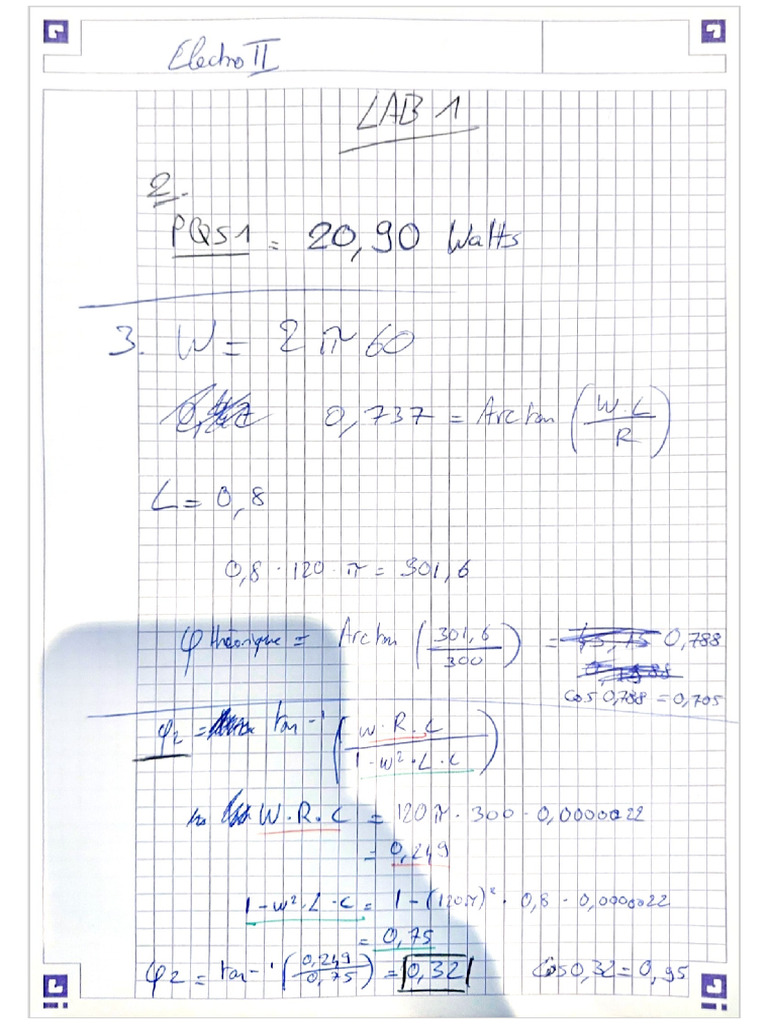 Electro II
LAB 1
2.
PQS1 = 20,90 Watts
3. W = 2 π 60
0,737 = Arctan (W.L / R)
L = 0,8
0,8 · 120 · π = 301,6
φ théorique = Arctan (301,6 / 300) = 0,788
cos 0,788 = 0,705
φ2 = tan-1 (W.R.C / 1-w²·L·C)
W.R.C = 120π · 300 · 0,0000022
= 0,249
1-w²·L·C = 1-(120π)² · 0,8 · 0,0000022
= 0,75
φ2 = tan-1 (0,249 / 0,75) = 0,32 Cos 0,32 = 0,95